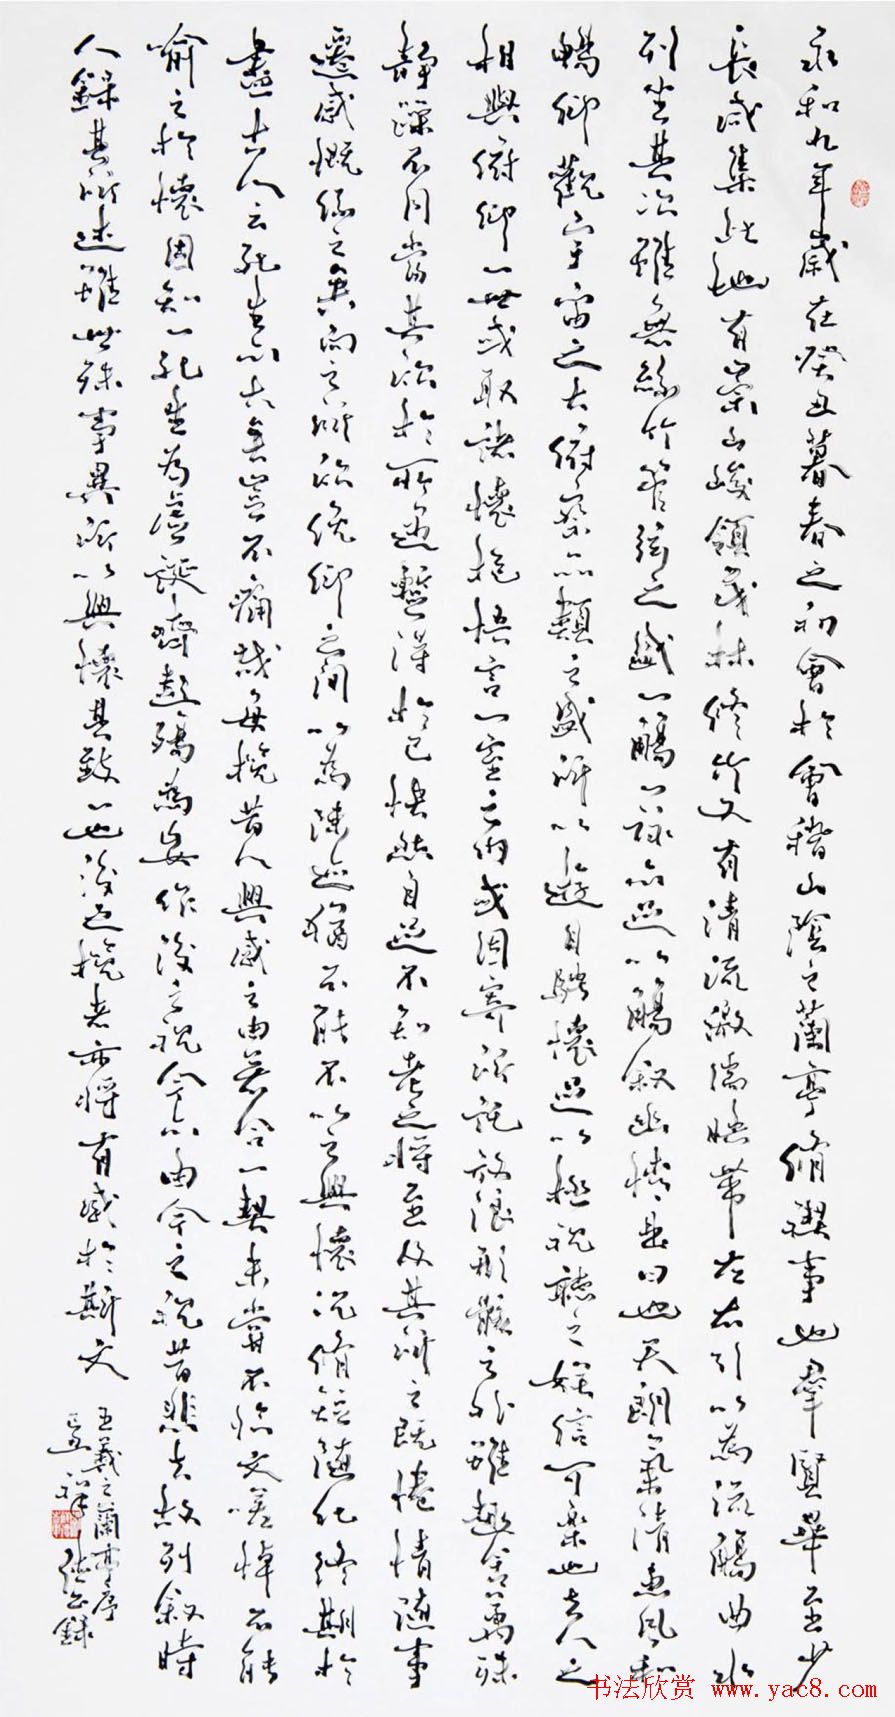 永和九年歲在癸丑暮春之初會於會稽山陰之蘭亭脩禊事也羣賢畢至少
長咸集此地有崇山峻領茂林修竹又有清流激湍暎帶左右引以為流觴曲水
列坐其次雖無絲竹管弦之盛一觴一詠亦足以暢叙幽情是日也天朗氣清惠風和
暢仰觀宇宙之大俯察品類之盛所以遊目騁懷足以極視聽之娛信可樂也夫人之
相與俯仰一世或取諸懷抱悟言一室之內或因寄所託放浪形骸之外雖趣舍萬殊
靜躁不同當其欣於所遇暫得於己快然自足不知老之將至及其所之既惓情隨事
遷感慨係之矣向之所欣俛仰之間以為陳迹猶不能不以之興懷況脩短隨化終期於
盡古人云死生亦大矣豈不痛哉每攬昔人興感之由若合一契未嘗不臨文嗟悼不能
喻之於懷固知一死生為虛誕齊彭殤為妄作後之視今亦由今之視昔悲夫故列叙時
人錄其所述雖世殊事異所以興懷其致一也後之攬者亦將有感於斯文
王羲之蘭亭序
祥
錄
书法欣赏 www.yac8.com